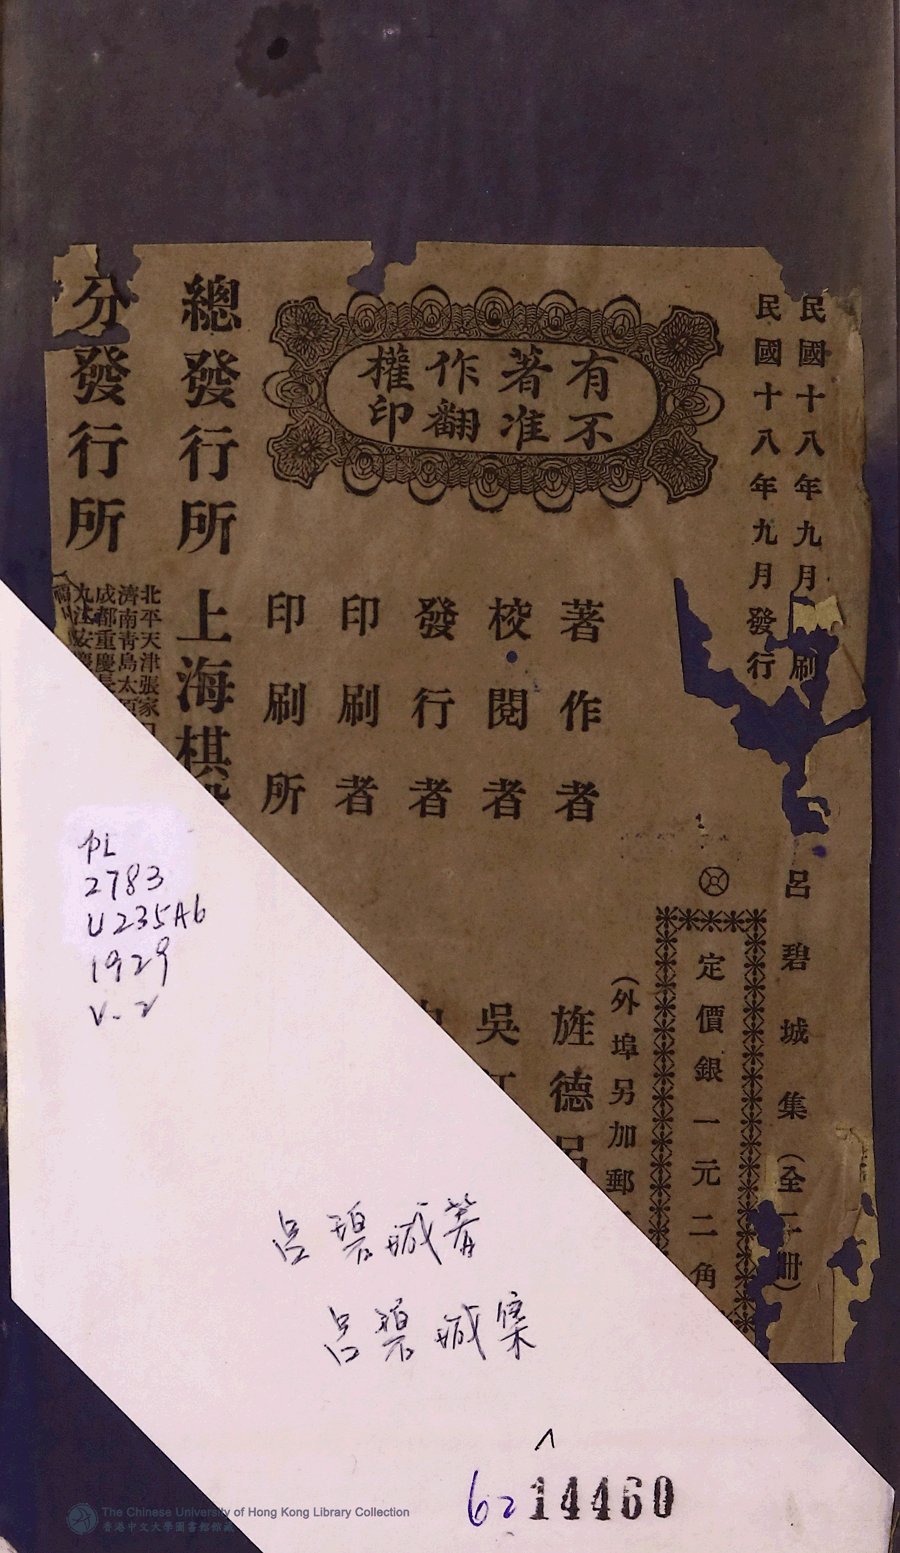 民國十八年九月 刷
民國十八年九月發行
呂碧城集（全二冊）
定價銀一元二角
（外埠另加郵
有著作權
不准翻印
著作者 旌德呂
校閱者 吳江
發行者
印刷者
印刷所
總發行所 上海棋
分發行所
北平天津張家口
濟南青島太原
成都重慶長
九江安慶
PL
2783
U235A6
1929
v.2
呂碧城著
呂碧城集
62 14460
The Chinese University of Hong Kong Library Collection
香港中文大學圖書館館藏